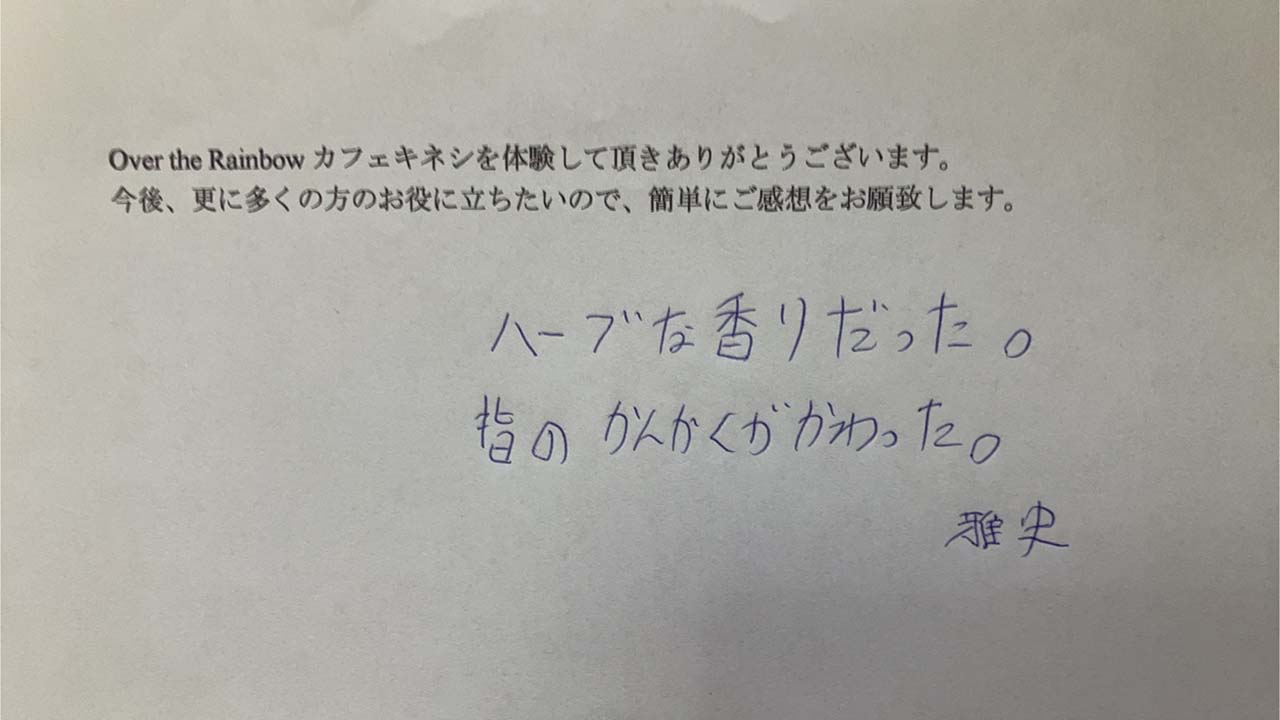 Over the Rainbow カフェキネシを体験して頂きありがとうございます。
今後、更に多くの方のお役に立ちたいので、簡単にご感想をお願致します。
ハーブな香りだった。
指のかんかくがかわった。
雅史